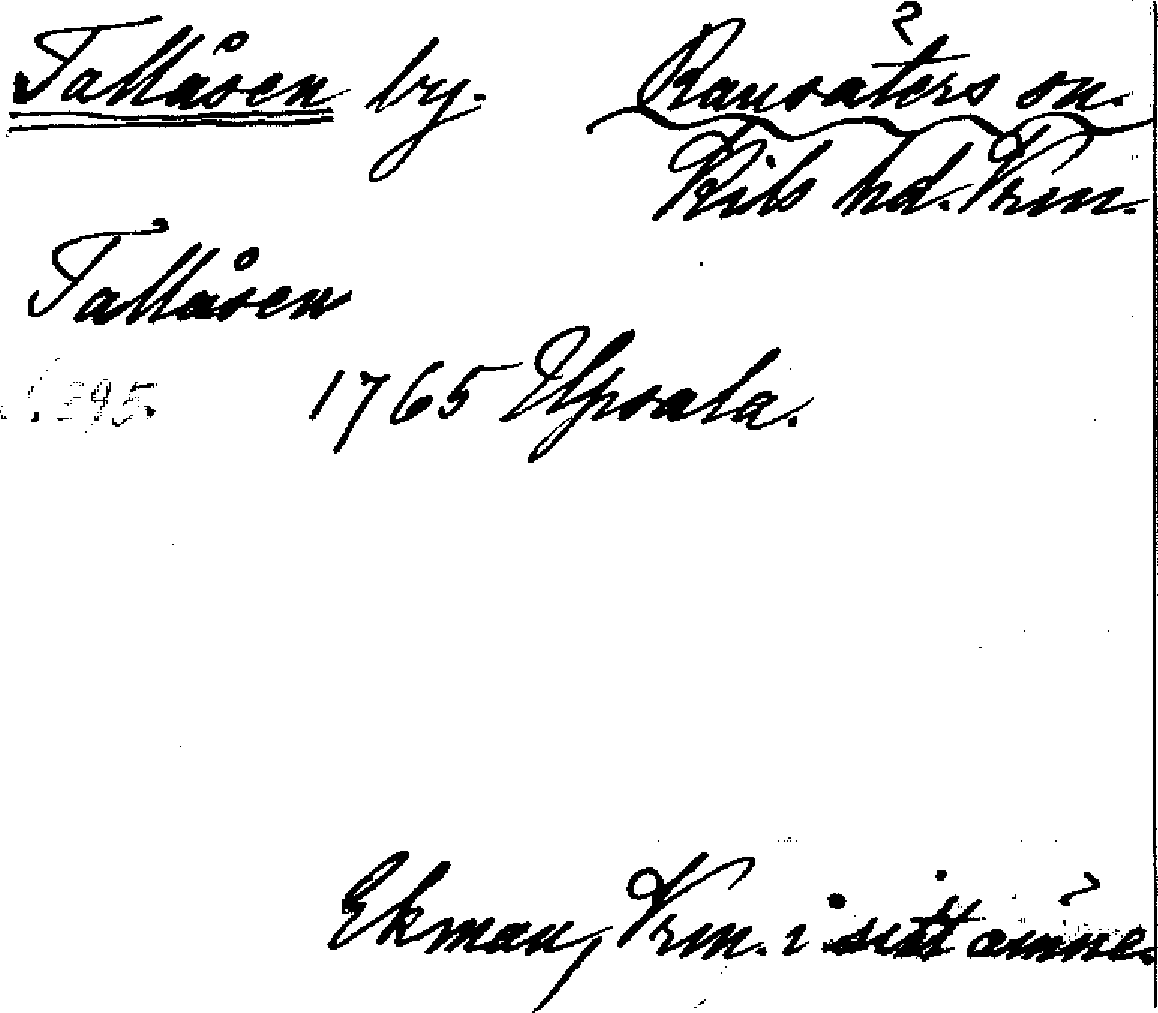 Tallåsen by. Ransäters sn.
Kils hd. Vrm.
Tallåsen
s. 295. 1765 Upsala.
Ekman, Vrm. i sitt ämne.